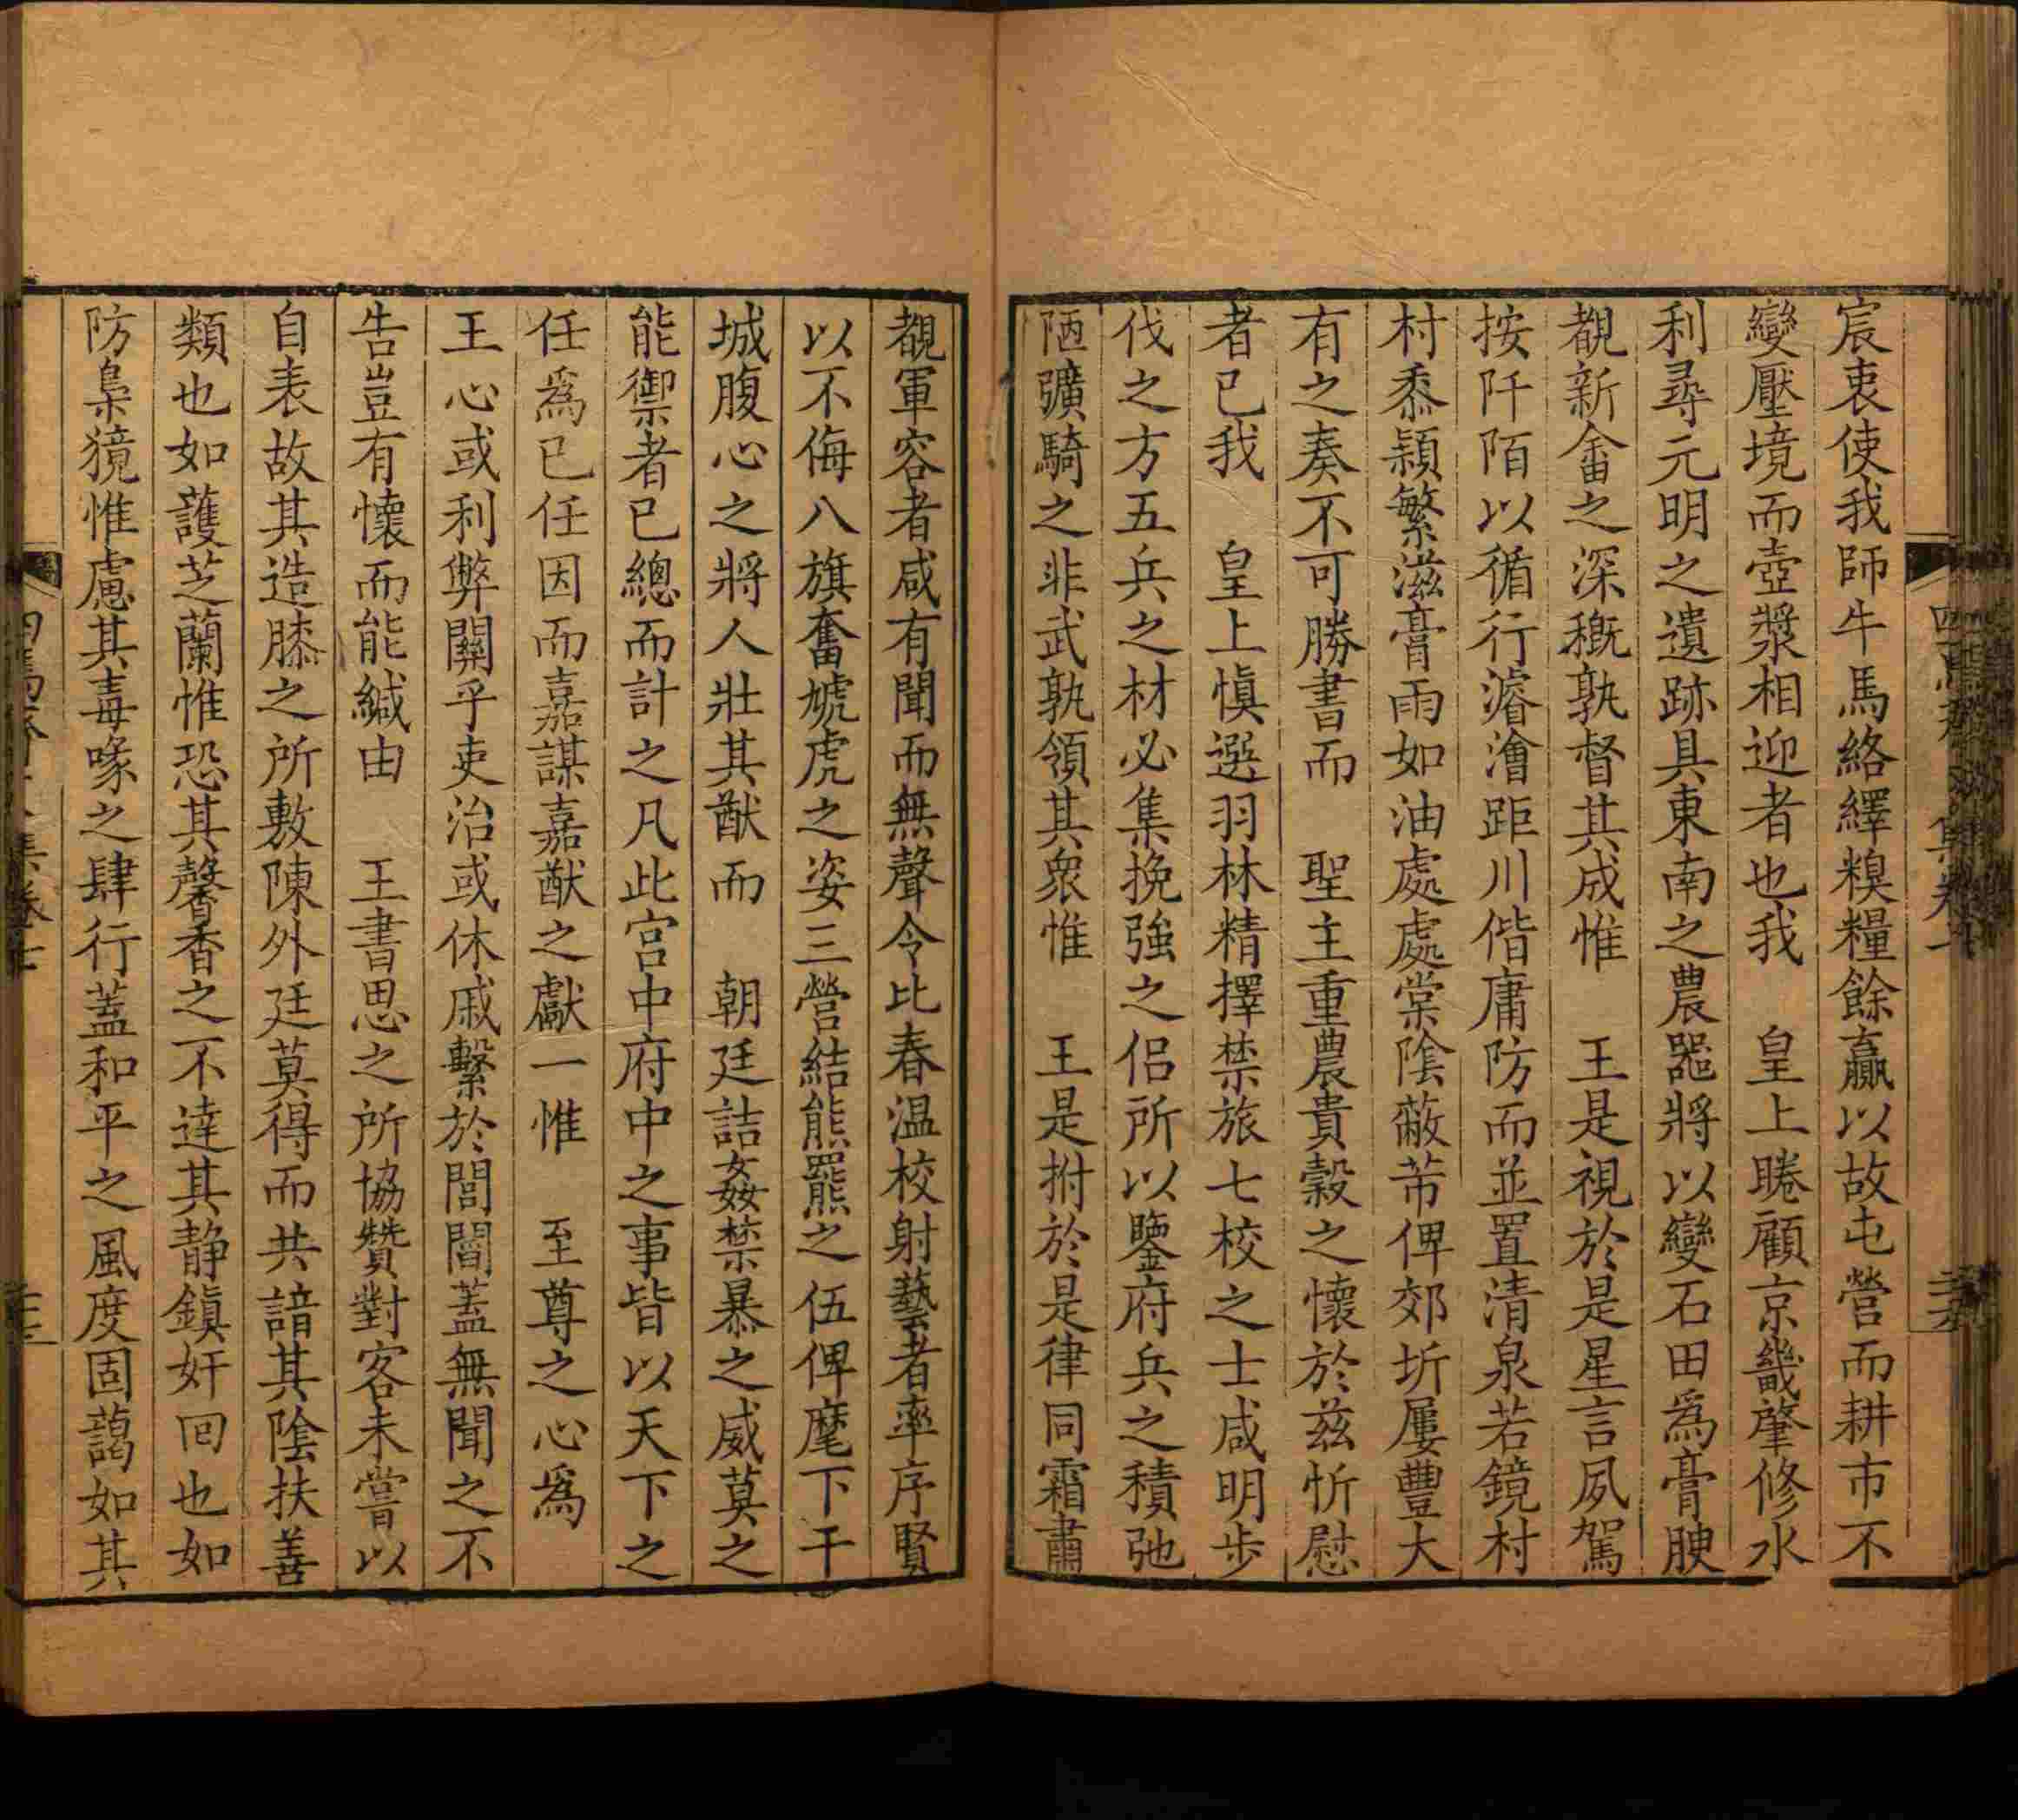 宸衷使我師牛馬絡繹糗糧餘贏以故屯營而耕市不
變壓境而壺漿相迎者也我　皇上睠顧京畿肇修水
利尋元明之遺跡具東南之農器將以變石田為膏腴
覩新畬之深穊孰督其成惟　王是視於是星言夙駕
按阡陌以循行濬澮距川偕庸防而並置清泉若鏡村
村黍穎繁滋膏雨如油處處棠陰蔽芾俾郊圻屢豐大
有之奏不可勝書而　聖主重農貴穀之懷於兹忻慰
者已我　皇上慎選羽林精擇禁旅七校之士咸明步
伐之方五兵之材必集挽強之侶所以鑒府兵之積弛
陋彍騎之非武孰領其衆惟　王是拊於是律同霜肅
覩軍容者咸有聞而無聲令比春温校射藝者率序賢
以不侮八旗奮虓虎之姿三營結熊羆之伍俾麾下干
城腹心之將人壯其猷而　朝廷詰姦禁暴之威莫之
能禦者已總而計之凡此宫中府中之事皆以天下之
任爲已任因而嘉謀嘉猷之獻一惟　至尊之心爲
王心或利弊關乎吏治或休戚繫於閭閻蓋無聞之不
告豈有懷而能緘由　王書思之所協贊對客未嘗以
自表故其造膝之所敷陳外廷莫得而共諳其陰扶善
類也如護芝蘭惟恐其馨香之不達其静鎮奸回也如
防梟獍惟慮其毒喙之肆行蓋和平之風度固藹如其